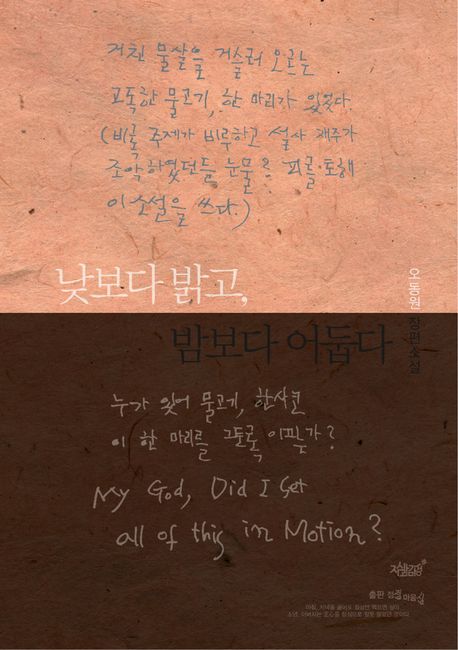 거친 물살을 거슬러 오르는
고독한 물고기, 한 마리가 있었다.
(비록 주제가 비루하고 설사 재주가
조악하였던들 눈물은 피를 토해
이 소설을 쓰다.)
낮보다 밝고,
밤보다 어둡다
오동원 장편소설
누가 있어 물고기, 한사코
이 한 마리를 그토록 이끎인가?
My God, Did I Set
all of this in Motion?
지식과감성
출판 정성 마음심